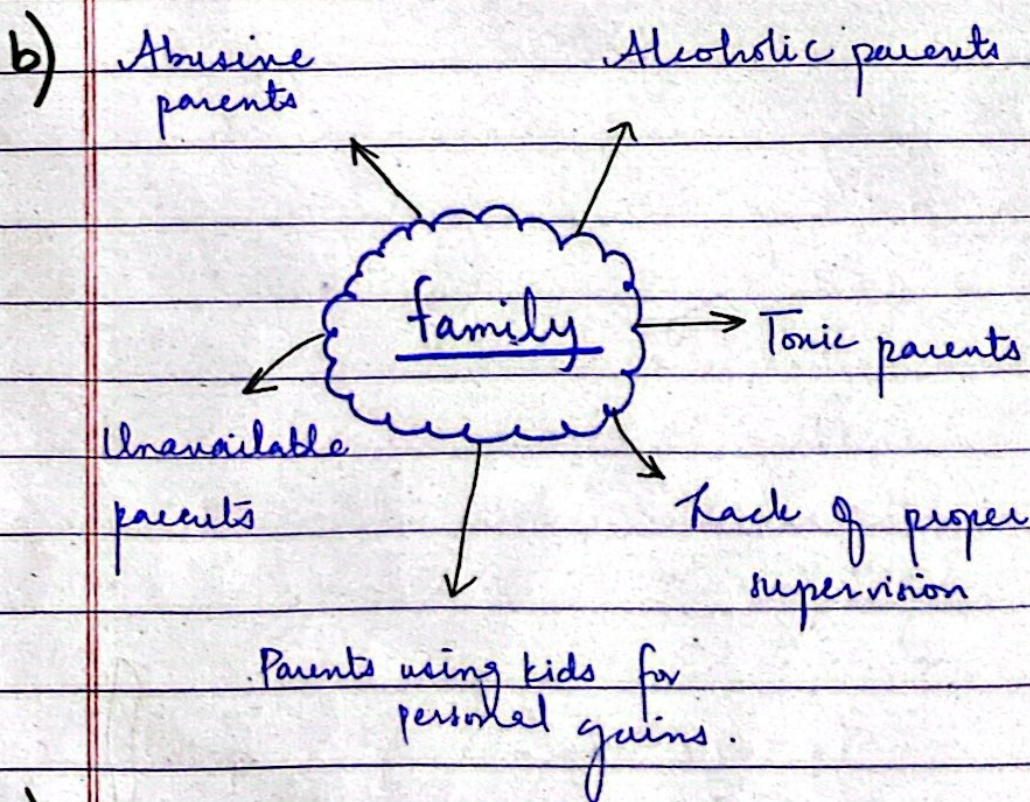 b) Abusive parents
Alcoholic parents
family
Toxic parents
Unavailable
parents
Lack of proper
supervision
Parents using kids for
personal gains.